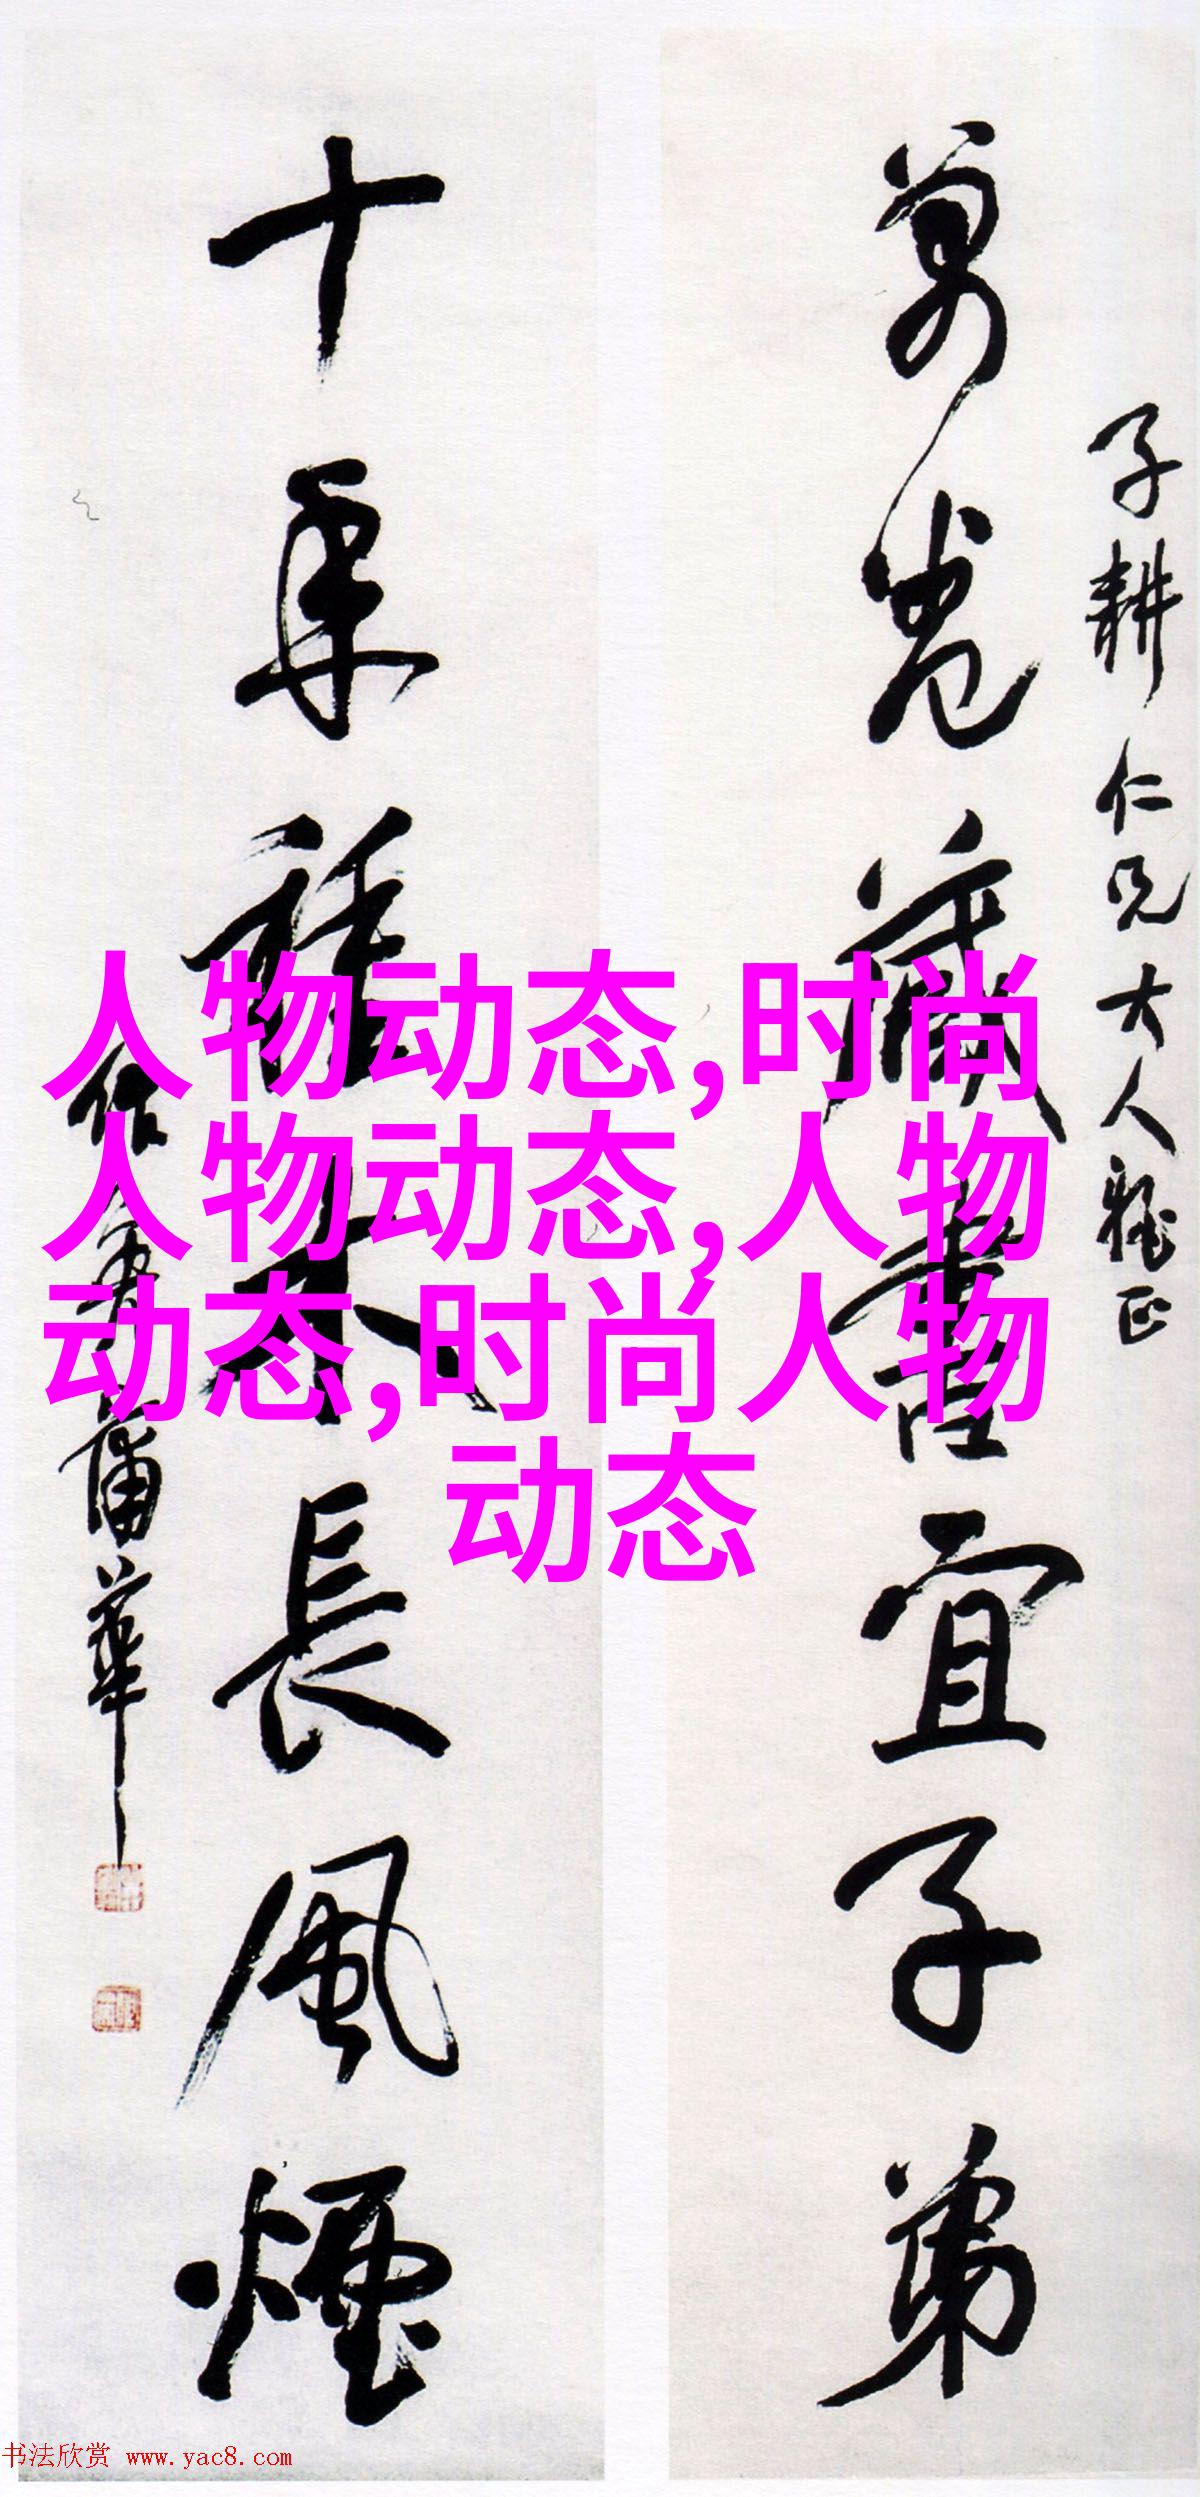 子耕仁兄大人雅正
萬卷藏書宜子弟
十年種木長風煙
作英蒲華
人物动态,时尚
人物动态,人物
动态,时尚人物
动态
书法欣赏 www.yac8.com